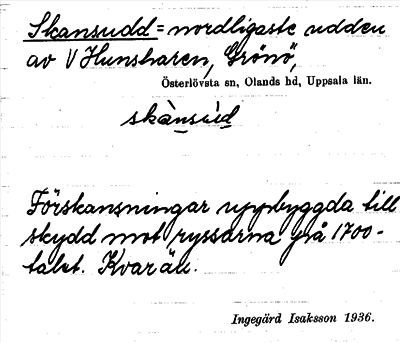 Skansudd = nordligaste udden
av V Hunsharen, Grönö,
Österlövsta sn, Olands hd, Uppsala län.
skànsùd
Förskansningar uppbyggda till
skydd mot ryssarna på 1700-
talet. Kvar än.
Ingegärd Isaksson 1936.